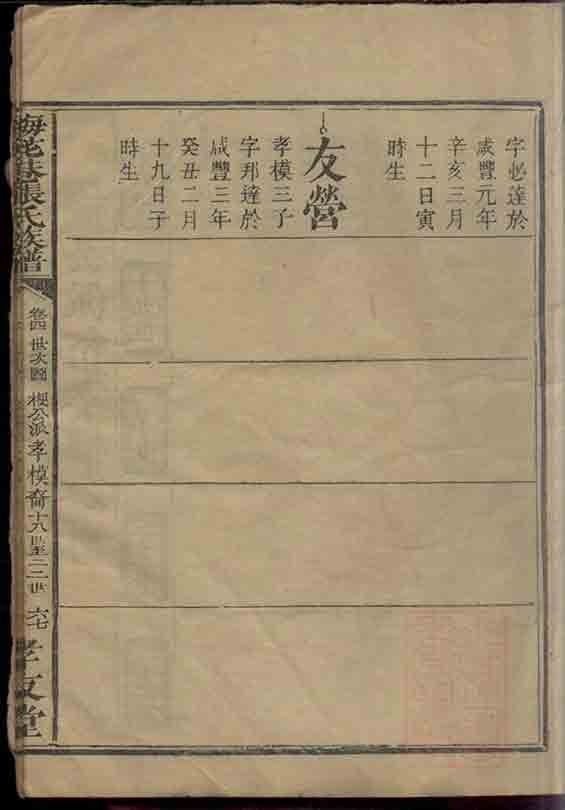 字必達於
咸豐元年
辛亥三月
十二日寅
時生
友營
孝模三子
字邦達於
咸豐三年
癸丑二月
十九日子
時生
梅花巷張氏族譜
卷四 世次圖 梗公派孝模裔十八世至二二世 六七
孝友堂